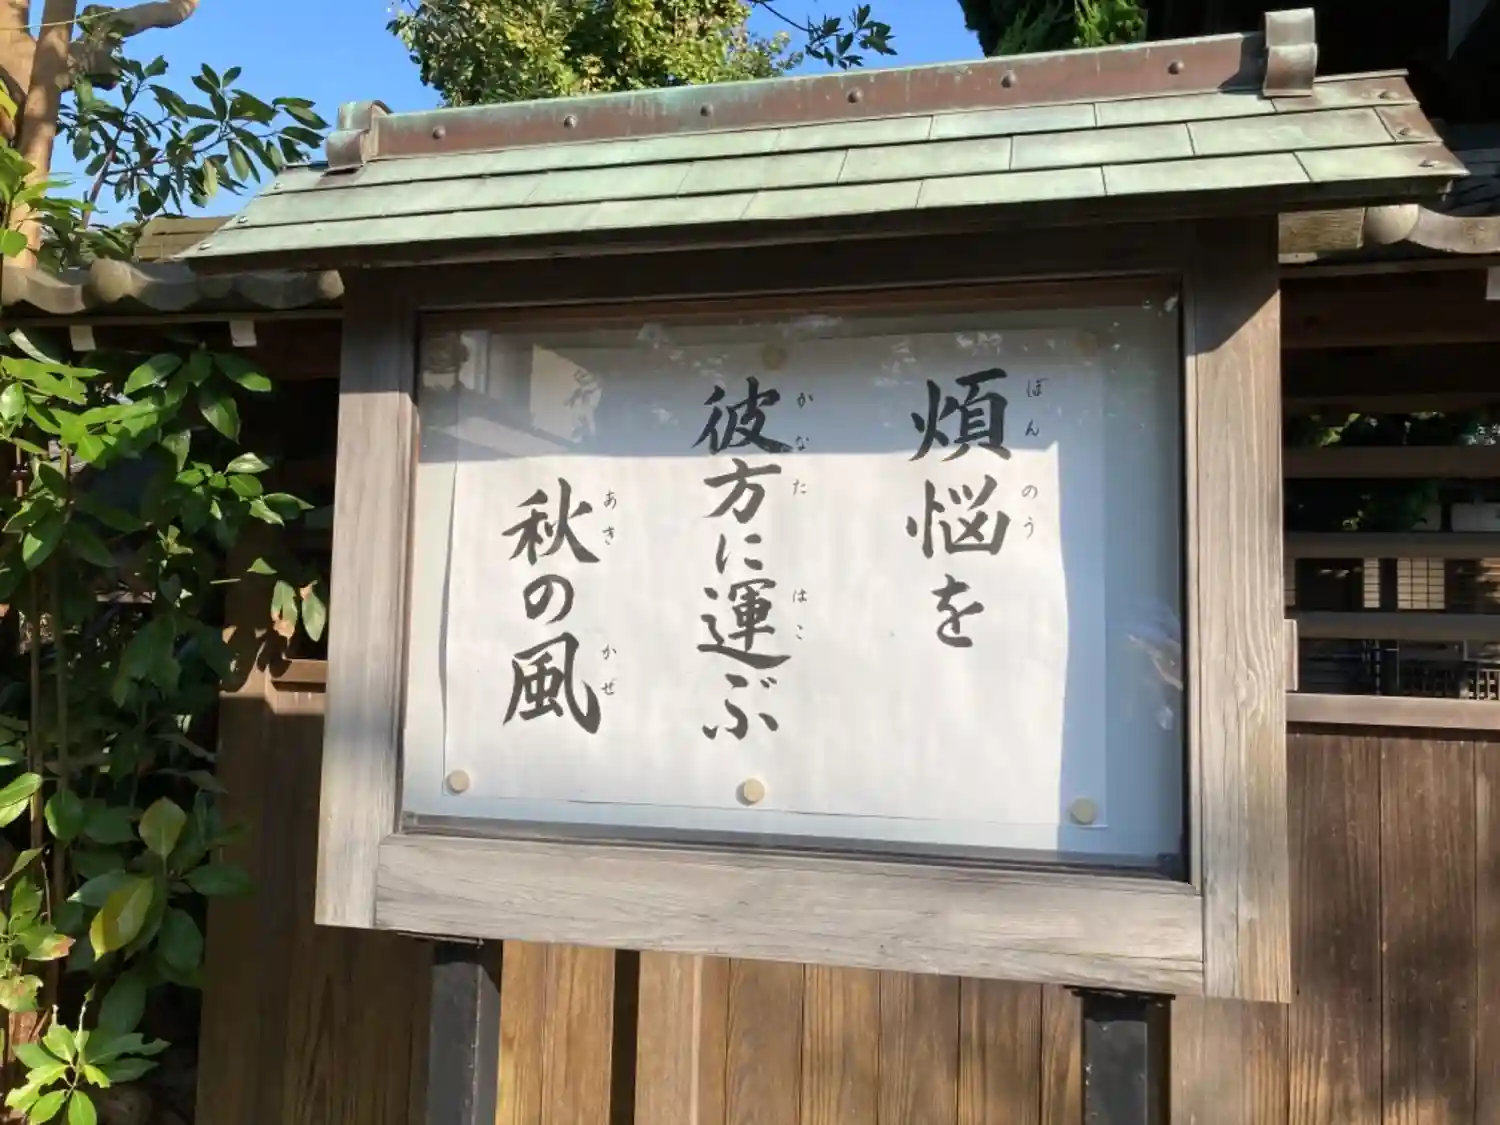 煩悩を
ぼんのう
彼方に運ぶ
かなた はこ
秋の風
あき かぜ